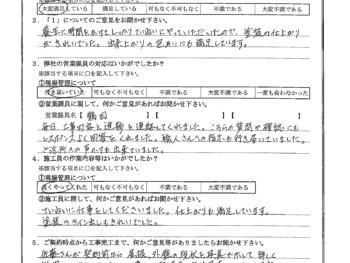 大変満足している　満足している　可もなく不可もなく　不満である　大変不満である
2．「1」についてのご意見をお聞かせ下さい。
養生に時間をかけてしっかり丁寧にやっていただいたので、塗装の仕上がり
がきれいでした。出来上がりの色あいにも満足しています。
3．弊社の営業課員の対応はいかがでしたか？
※該当する項目に〇を記入して下さい。
①現場管理について
行き届いていた　可もなく不可もなく　不満である　大変不満である　一度も会わなかった
②営業課員に関して、何かご意見があればお聞かせ下さい。
営業課員名【　鶴田　】【　】【　】
毎日、工事内容と進捗を連絡してくれました。こちらの質問や確認にも
レスポンスよく回答をくれました。職人さんへの指示も行き届いていました。
ご近所への声かけも出来ていました。
4．施工員の作業内容等はいかがでしたか？
※該当する項目に〇を記入して下さい。
①現場管理について
良くやってくれた　可もなく不可もなく　不満である　大変不満である
②施工員に関して、何かご意見があればお聞かせ下さい。
ていねいに仕事をしてくださいました。仕上がりも満足しています。
塗装のライン出しもきれいでした。
5．ご契約時点から工事完工まで、何かご意見等がありましたらお聞かせ下さい。
佐藤さんが契約前から屋根、外壁の現状を写真で示して詳しく